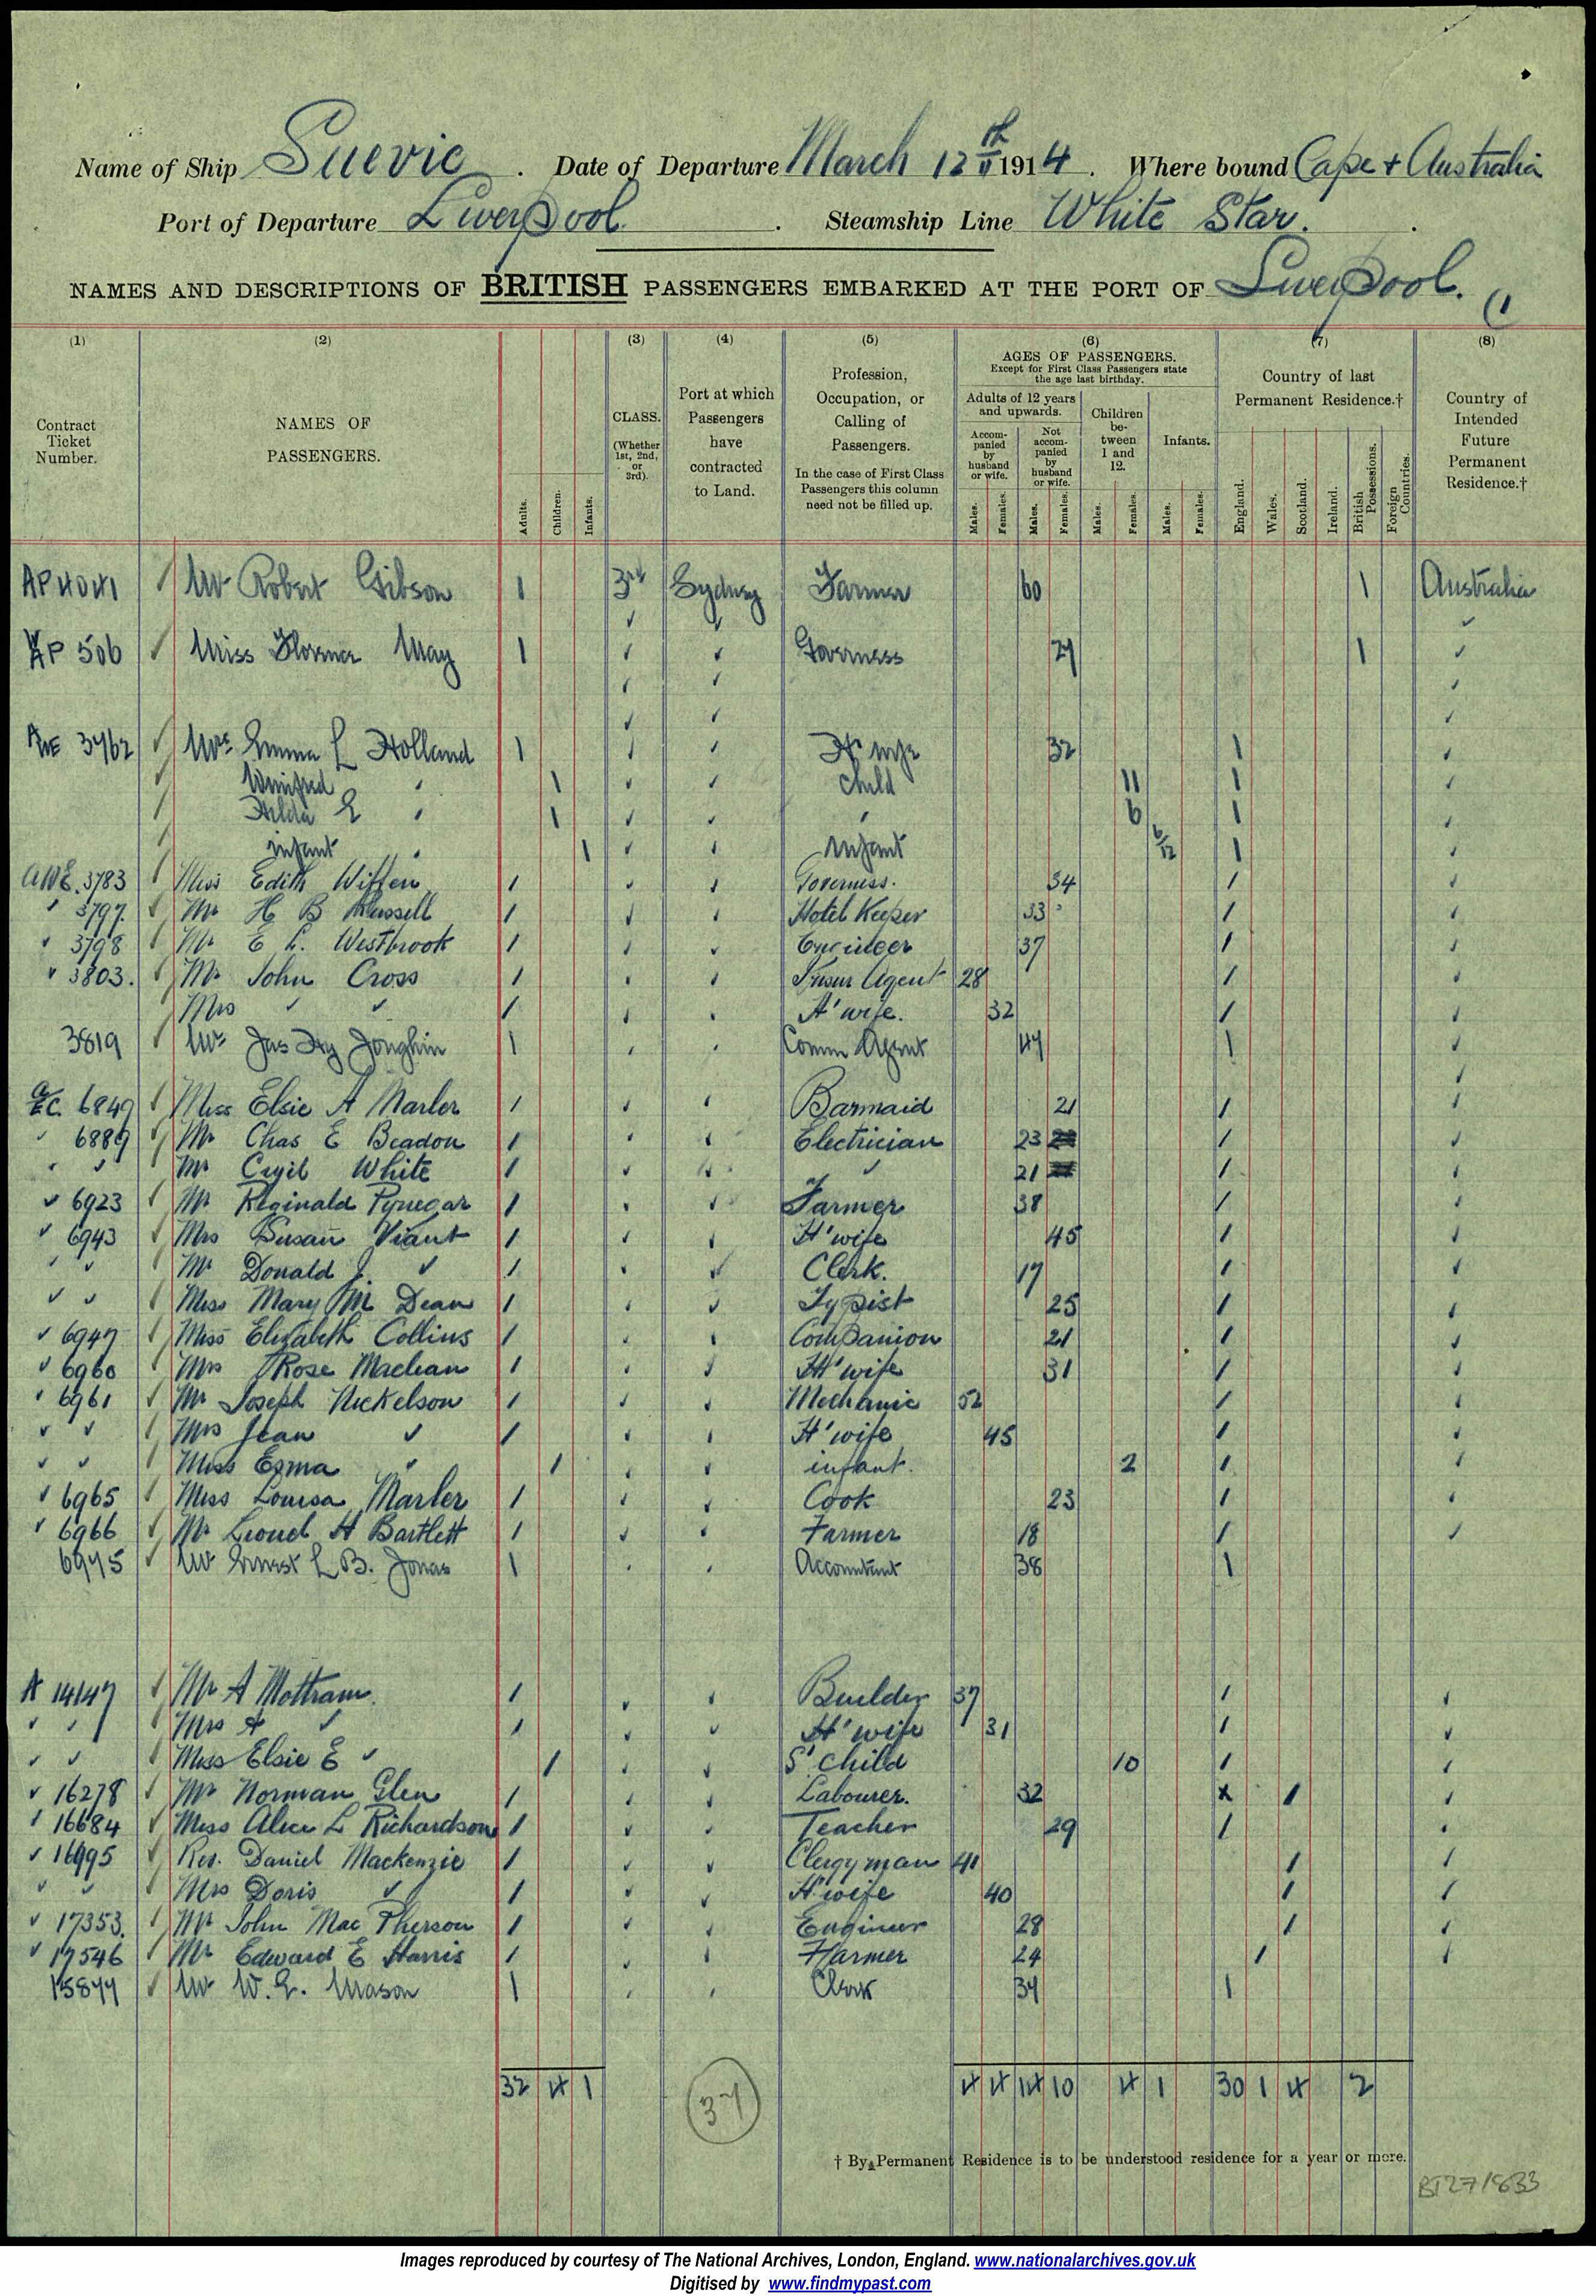 Name of Ship Suevic. Date of Departure March 12th 1914. Where bound Cape + Australia
Port of Departure Liverpool. Steamship Line White Star.
NAMES AND DESCRIPTIONS OF BRITISH PASSENGERS EMBARKED AT THE PORT OF Liverpool.
(1) (2) (3) (4) (5) (6) (7) (8)
Contract Ticket Number.
NAMES OF PASSENGERS.
Adults. Children. Infants.
CLASS. (Whether 1st, 2nd, or 3rd).
Port at which Passengers have contracted to Land.
Profession, Occupation, or Calling of Passengers.
In the case of First Class Passengers this column need not be filled up.
AGES OF PASSENGERS.
Except for First Class Passengers state the age last birthday.
Adults of 12 years and upwards.
Accompanied by husband or wife.
Not accompanied by husband or wife.
Children between 1 and 12.
Infants.
Males. Females. Males. Females. Males. Females. Males. Females.
Country of last Permanent Residence.†
England. Wales. Scotland. Ireland. British Possessions. Foreign Countries.
Country of Intended Future Permanent Residence.†
AP 4041 Mr Robert Gibson 1 3rd Sydney Farmer 60 1 Australia
506 Miss Florence May 1 Governess 1
3762 Mrs Emma L Holland 1 H wife 32 1
Winifred " 1 child 11 1
Hilda E " 1 " 6 1
infant " 1 Infant 6/12 1
AWE. 3783 Miss Edith Wiffen 1 Governess. 34 1
" 3797 Mr H B Russell 1 Hotel Keeper 33 1
" 3798 Mr E L. Westbrook 1 Engineer 37 1
" 3803. Mr John Cross 1 Insur Agent 28 1
Mrs " " 1 H'wife. 32 1
3819 Mr Jas Hy Jonghin 1 Comm Agent 1
6849 Miss Elsie A Marler 1 Barmaid 21 1
" 6889 Mr Chas E Beadon 1 Electrician 23 1
" " Mr Cyril White 1 " 21 1
" 6923 Mr Reginald Pynegar 1 Farmer 38 1
" 6943 Mrs Susan Viant 1 H'wife 45 1
" " Mr Donald J. " 1 Clerk. 17 1
" " Miss Mary M Dean 1 Typist 25 1
" 6947 Miss Elizabeth Collins 1 Companion 21 1
" 6960 Mrs Rose Maclean 1 H'wife 31 1
" 6961 Mr Joseph Nickelson 1 Mechanic 52 1
" " Mrs Jean " 1 H'wife 45 1
" " Miss Esma " 1 infant. 2 1
" 6965 Miss Louisa Marler 1 Cook 23 1
" 6966 Mr Lionel H Bartlett 1 Farmer 18 1
6975 Mr Ernest L B. Jonas 1 Accountant 38 1
A 14147 Mr A Mottram. 1 Builder 37 1
" " Mrs A " 1 H'wife 31 1
" " Miss Elsie E " 1 S'child 10 1
" 16278 Mr Norman Glen 1 Labourer. 32 x 1
" 16684 Miss Alice L Richardson 1 Teacher 29 1
" 16995 Rev. Daniel Mackenzie 1 Clergyman 41 1
" " Mrs Doris " 1 H'wife 40 1
" 17353. Mr John Mac Pherson 1 Engineer 28 1
" 17546 Mr Edward E Harris 1 Farmer 24 1
15877 Mr W. E. Mason 1 Clerk 34 1
32 4 1 37 4 4 14 10 4 1 30 1 4 2
† By Permanent Residence is to be understood residence for a year or more.
BT27/833
Images reproduced by courtesy of The National Archives, London, England. www.nationalarchives.gov.uk
Digitised by www.findmypast.com